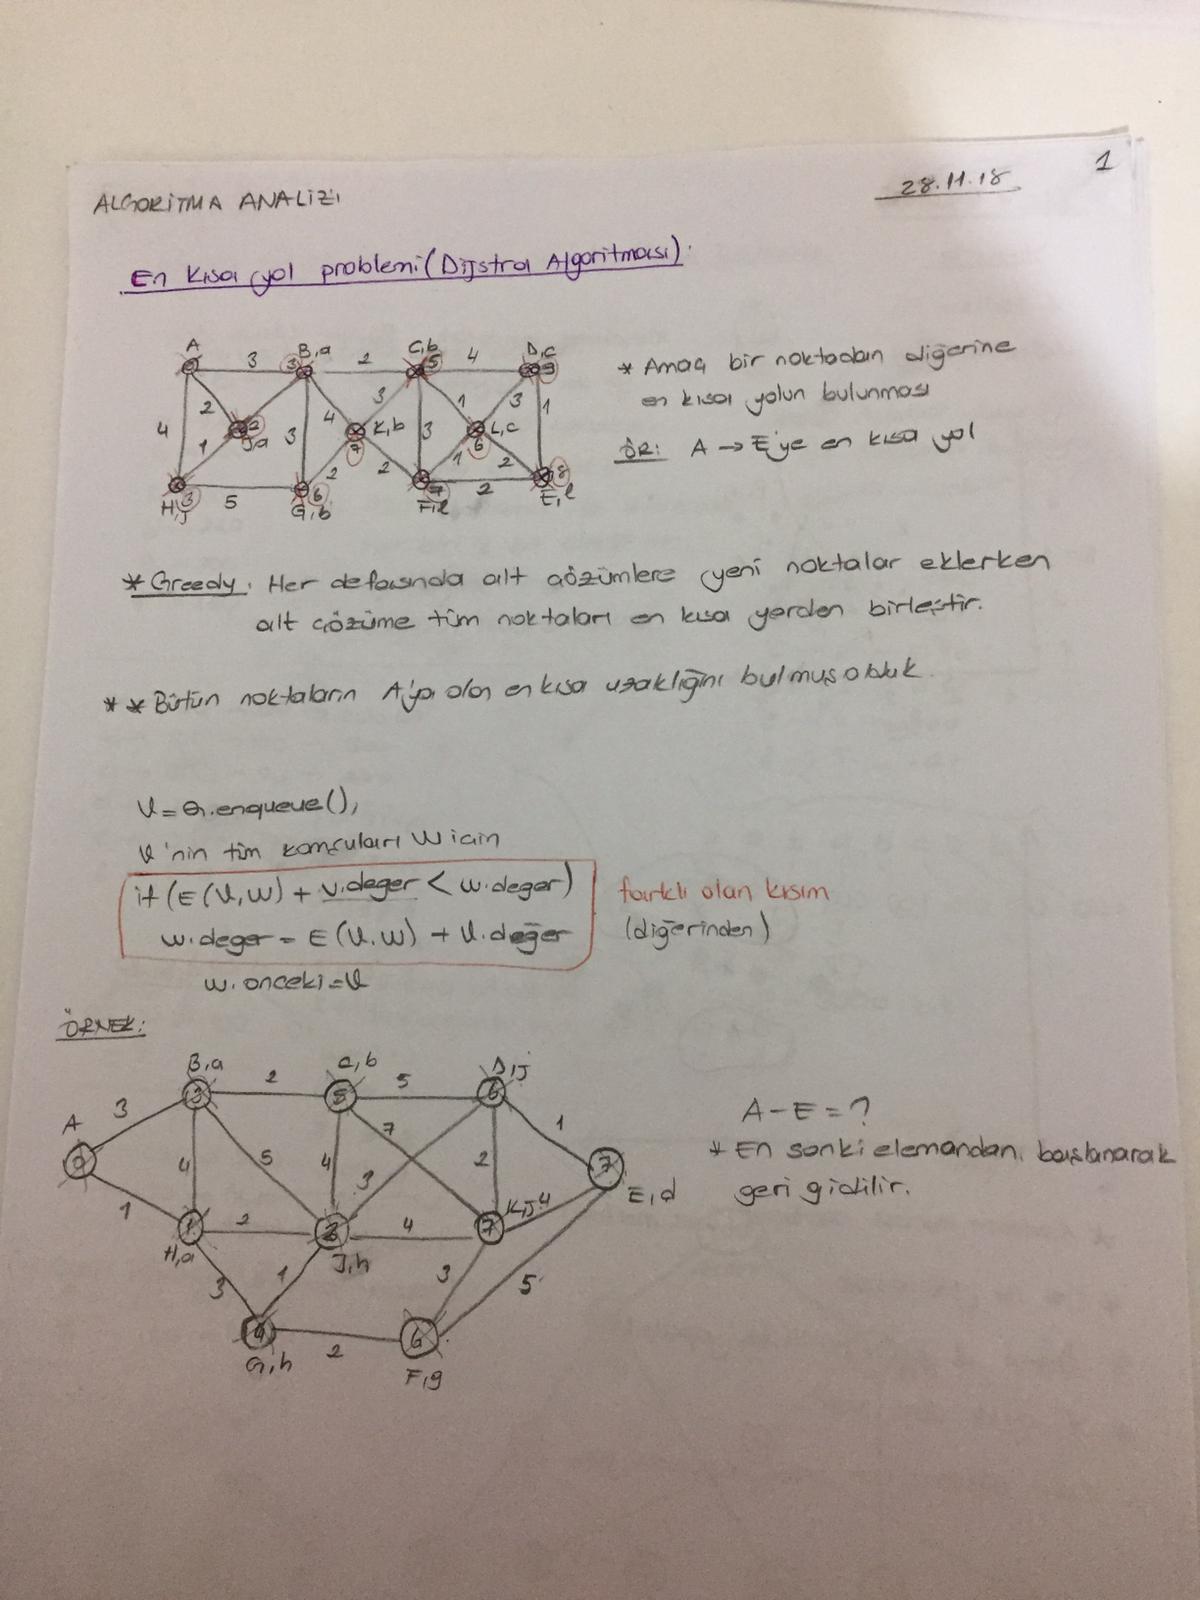 1
ALGORİTMA ANALİZİ
28.11.18
En kısa yol problemi (Dijstra Algoritması)
A 3 B,a 2 C,b 4 D,c
3 5 9
4 2 1 J,a 2 3 4 K,b 7 3 3 1 L,c 6 3 1
H,j 3 5 G,b 6 2 2 F,l 7 1 2 2 E,l 8
* Amaç bir noktadan diğerine
en kısa yolun bulunması
ÖR: A → E'ye en kısa yol
* Greedy. Her defasında alt çözümlere yeni noktalar eklerken
alt çözüme tüm noktaları en kısa yerden birleştir.
* * Bütün noktaların A'ya olan en kısa uzaklığını bulmuş olduk.
V = Q.enqueue(),
V'nin tüm komşuları W için
if (E (V,W) + v.deger < w.deger)
w.deger = E (V.W) + V.değer
w.onceki = V
farklı olan kısım
(diğerinden)
ÖRNEK:
B,a 2 C,b 5 D,j
A 3 3 5 6 1
0 4 5 4 7 3 2 7 E,d
1 1 2 3 4 7 K,j 4
H,a J,h
3 1 3 5
4 2 6
G,h F,g
A - E = ?
* En sonki elemandan başlanarak
geri gidilir.